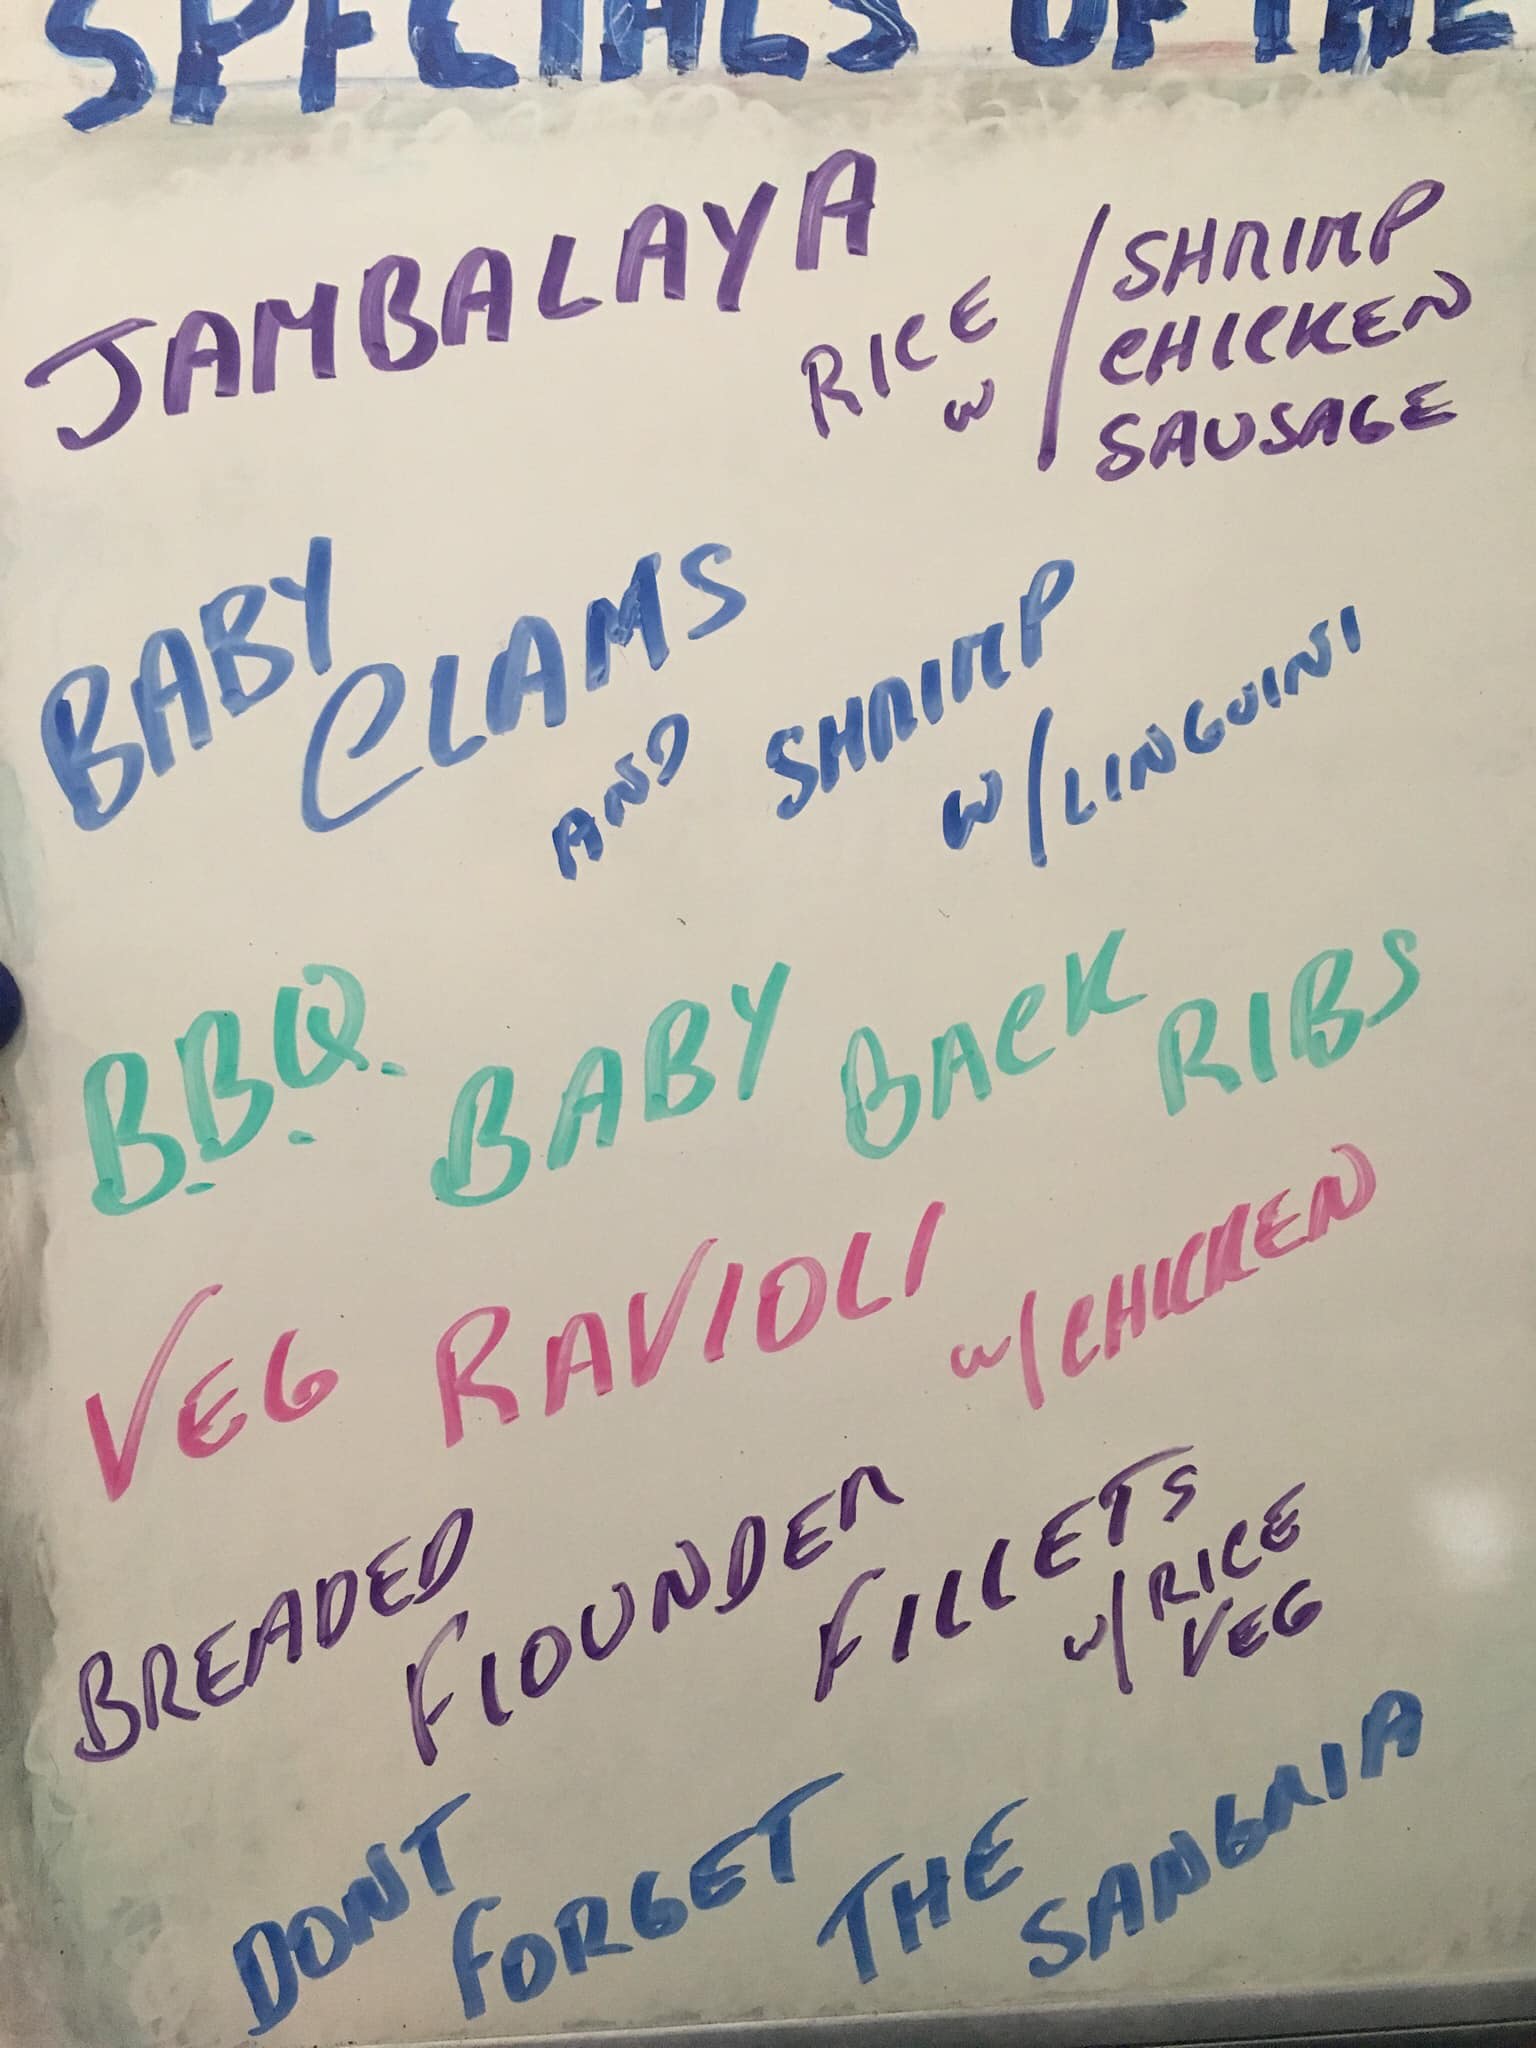 SPECIALS OF THE
JAMBALAYA RICE W/ SHRIMP
CHICKEN
SAUSAGE
BABY CLAMS AND SHRIMP W/LINGUINI
B.B.Q. BABY BACK RIBS
VEG RAVIOLI W/CHICKEN
BREADED FLOUNDER FILLETS W/RICE
VEG
DONT FORGET THE SANGRIA